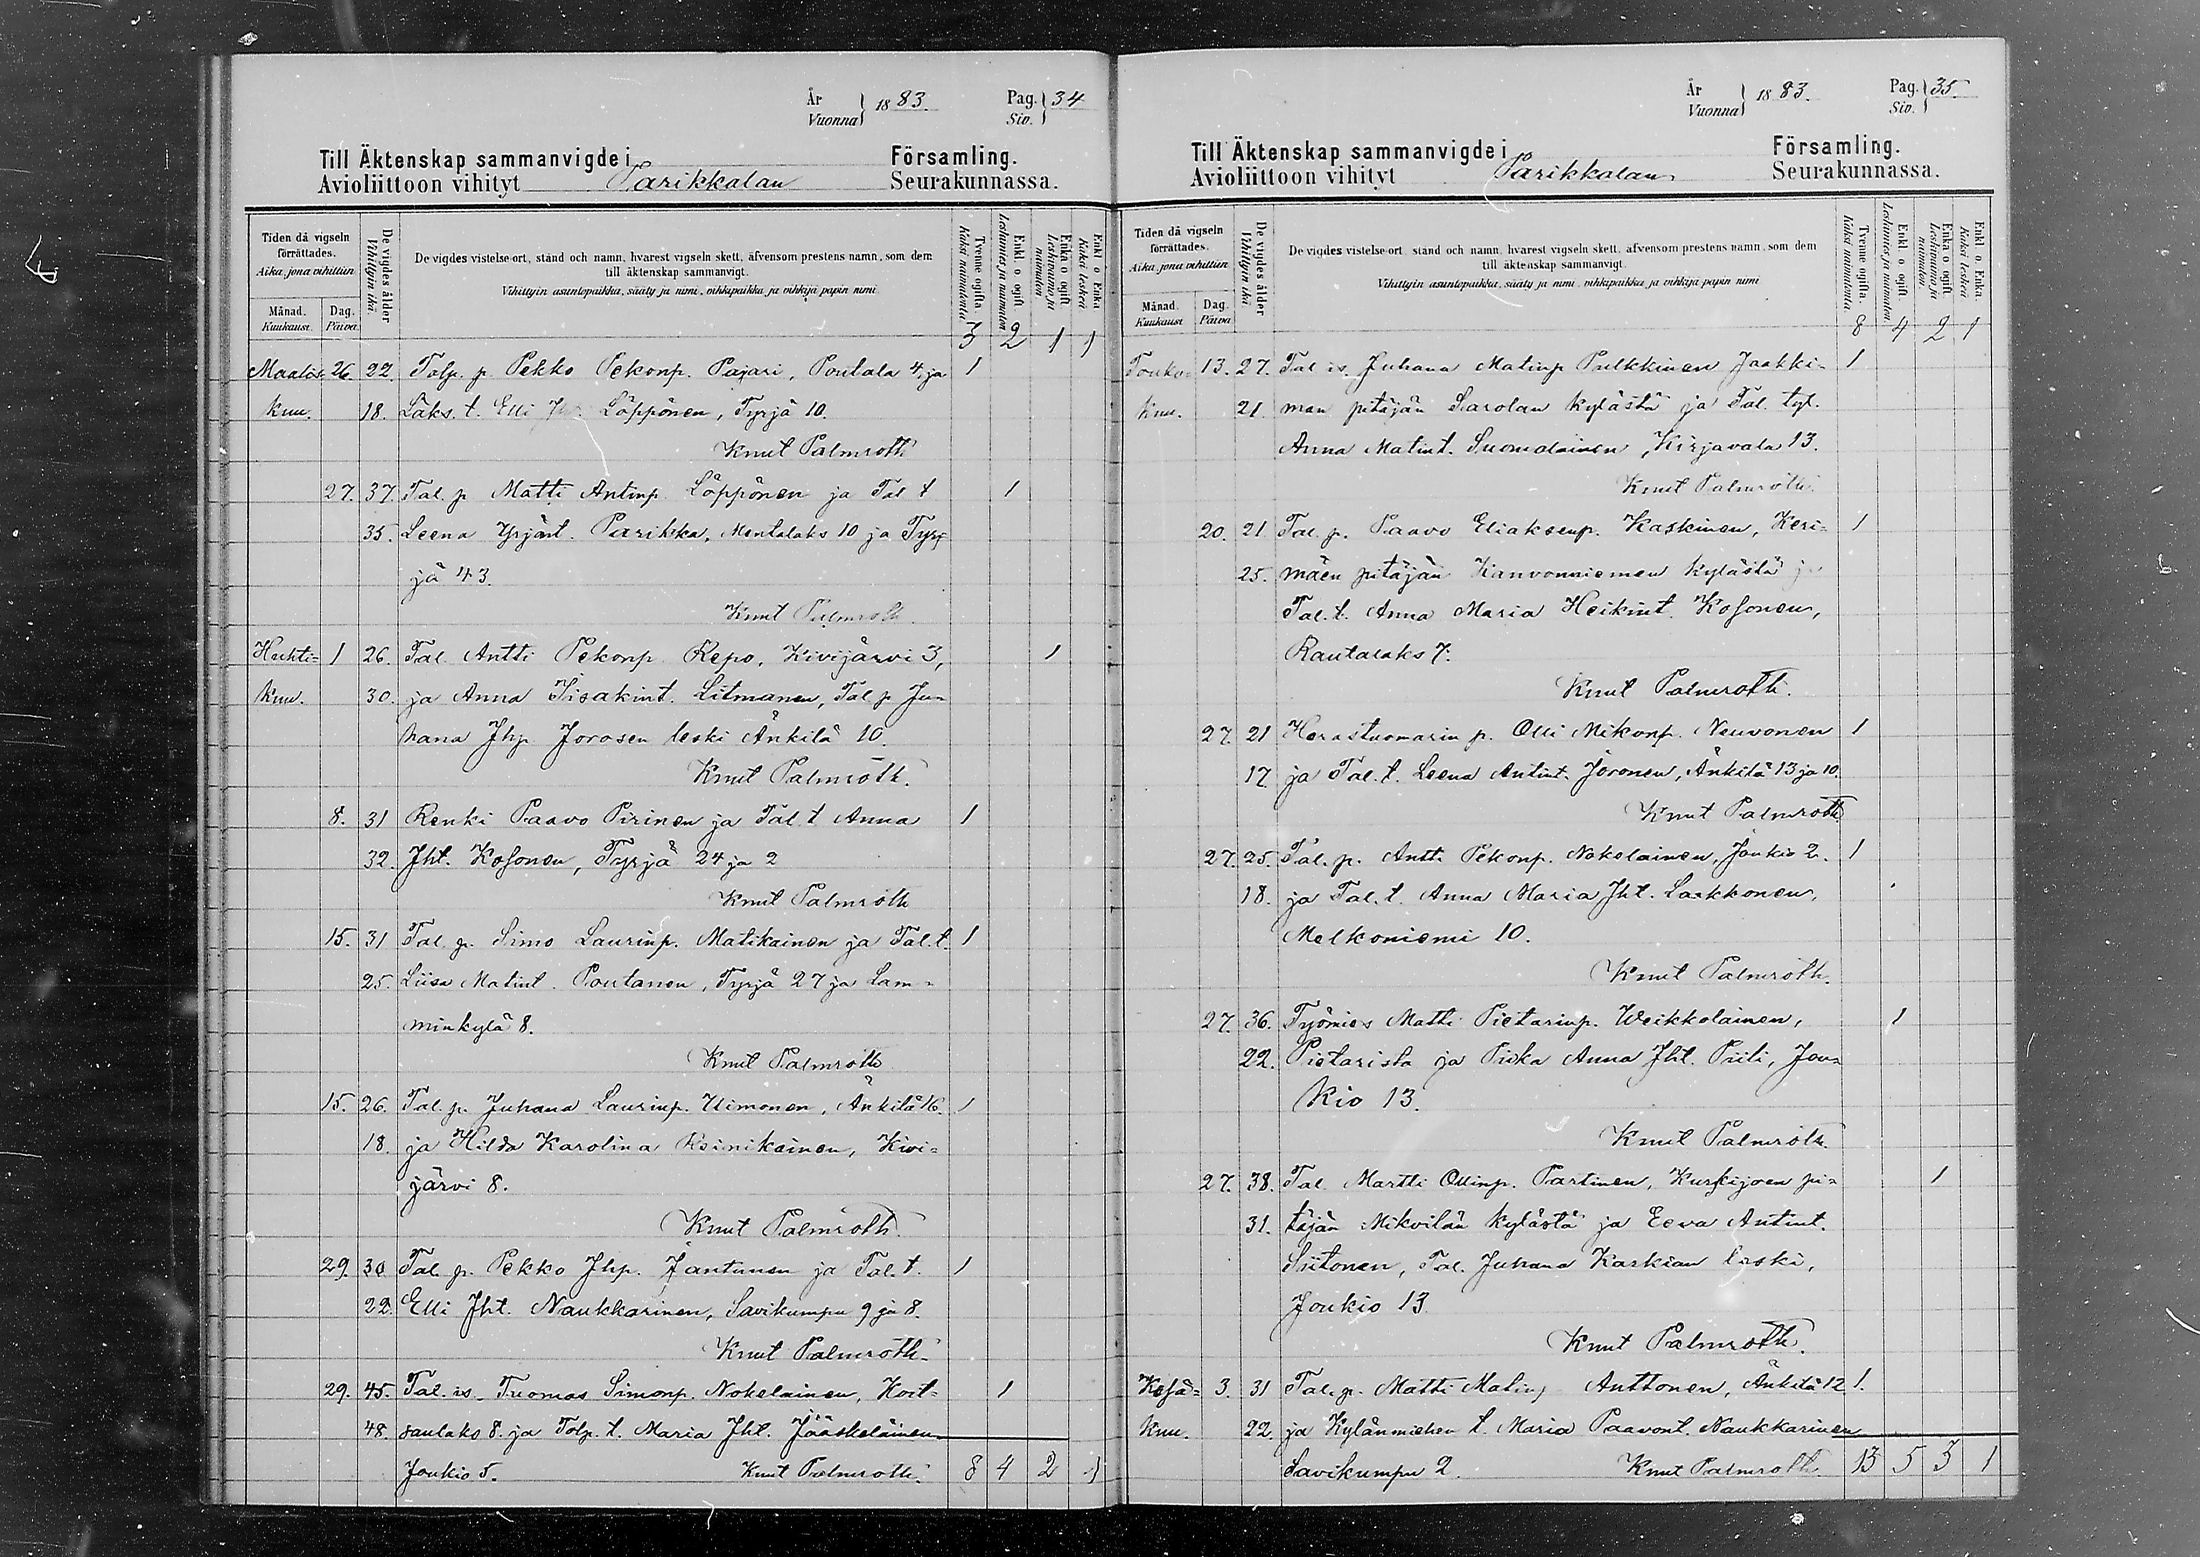 År
Vuonna } 1883. Pag. Siv. } 34
Till Äktenskap sammanvigde i Församling.
Avioliittoon vihityt Parikkalan Seurakunnassa.
Tiden då vigseln förrättades.
Aika, jona vihittiin
Månad. Kuukausi. Dag. Päivä.
De vigdes ålder
Vihittyin ikä.
De vigdes vistelse-ort, stånd och namn, hvarest vigseln skett, äfvensom prestens namn, som dem
till äktenskap sammanvigt.
Vihittyin asuntopaikka, sääty ja nimi, vihkipaikka ja vihkijä papin nimi
Tvenne ogifta. Kaksi naimatonta
Enkl. o ogift. Leskimies ja naimaton
Enka o ogift. Leskivaimo ja naimaton
Enkl o Enka Kaksi leskeä
3 2 1 1
Maalis- 26. 22. Tolp. p. Pekko Pekonp. Pajari, Poutala 4, ja 1
kuu. 18. Läks. t. Elli Löppönen, Tyrjä 10.
Knut Palmroth
27. 37. Tal. p Matti Antinp. Löppönen ja Tal t 1
35. Leena Yrjönt. Parikka, Mentalaks 10 ja Tyr-
jä 43.
Knut Palmroth
Huhti- 1 26. Tal. Antti Pekonp. Repo, Kivijärvi 3, 1
kuu. 30. ja Anna Iisakint. Litmanen, Tal. p Ju-
hana Jhp. Jorosen leski Änkilä 10.
Knut Palmroth.
8. 31 Renki Paavo Pirinen ja Tal. t Anna 1
32. Jht. Kosonen, Tyrjä 24 ja 2
Knut Palmroth
15. 31 Tal. p. Simo Laurinp. Matikainen ja Tal. t. 1
25. Liisa Matint. Poutanen, Tyrjä 27 ja Lam-
minkylä 8.
Knut Palmroth
15. 26. Tal. p. Juhana Laurinp. Uimonen, Änkilä 16. 1
18. ja Hilda Karolina Reinikainen, Kivi-
järvi 8.
Knut Palmroth.
29. 30 Tal. p. Pekko Jhp. Jantunen ja Tal. t. 1
22. Elli Jht. Naukkarinen, Savikumpu 9 ja 8.
Knut Palmroth.
29. 45. Tal. is. Tuomas Simonp. Nokelainen, Koit- 1
48. sanlaks 8. ja Tolp. t. Maria Jht. Jääskeläinen
Joukio 5. Knut Palmroth. 8 4 2 1
År
Vuonna } 1883. Pag. Siv. } 35.
Till Äktenskap sammanvigde i Församling.
Avioliittoon vihityt Parikkalan Seurakunnassa.
Tiden då vigseln förrättades.
Aika, jona vihittiin
Månad. Kuukausi Dag. Päivä
De vigdes ålder
Vihittyin ikä
De vigdes vistelse-ort stånd och namn, hvarest vigseln skett, äfvensom prestens namn, som dem
till äktenskap sammanvigt.
Vihittyin asuntopaikka, sääty ja nimi, vihkipaikka ja vihkijä papin nimi
Tvenne ogifta. Kaksi naimatonta
Enkl. o ogift. Leskimies ja naimaton.
Enka o ogift. Leskivaimo ja naimaton
Enkl o. Enka. Kaksi leskeä
8 4 2 1
Touko- 13. 27. Tal is. Juhana Matinp Pulkkinen Jaakki- 1
kuu. 21. man pitäjän Sarolan kylästä ja Tal. tyt.
Anna Matint. Suomalainen, Kirjavala 13.
Knut Palmroth.
20. 21. Tal. p. Paavo Eliaksenp. Kaskinen, Keri- 1
25. mäen pitäjän Kanvonniemen kylästä ja
Tal. t. Anna Maria Heikint. Kosonen,
Rautalaks 7.
Knut Palmroth.
27. 21 Herastuomarin p. Olli Mikonp. Neuvonen 1
17. ja Tal. t. Leena Antint. Joronen, Änkilä 13 ja 10.
Knut Palmroth.
27. 25. Tal. p. Antti Pekonp. Nokelainen, Joukio 2. 1
18. ja Tal. t. Anna Maria Jht. Laukkonen,
Melkoniemi 10.
Knut Palmroth.
27. 36. Työmies Matti Pietarinp. Weikkolainen, 1
22. Pietarista ja Piika Anna Jht. Piiti, Jou-
kio 13.
Knut Palmroth.
27. 38. Tal. Martti Ollinp. Partinen, Kurkijoen pi- 1
31. täjän Mikvilän kylästä ja Eeva Antint.
Siitonen, Tal. Juhana Karkian leski,
Joukio 13
Knut Palmroth.
Kesä- 3. 31 Tal. p. Matti Matinp Anttonen, Änkilä 12 1.
kuu. 22. ja Kylänmiehen t. Maria Paavont. Naukkarinen
Savikumpu 2. Knut Palmroth 13 5 3 1